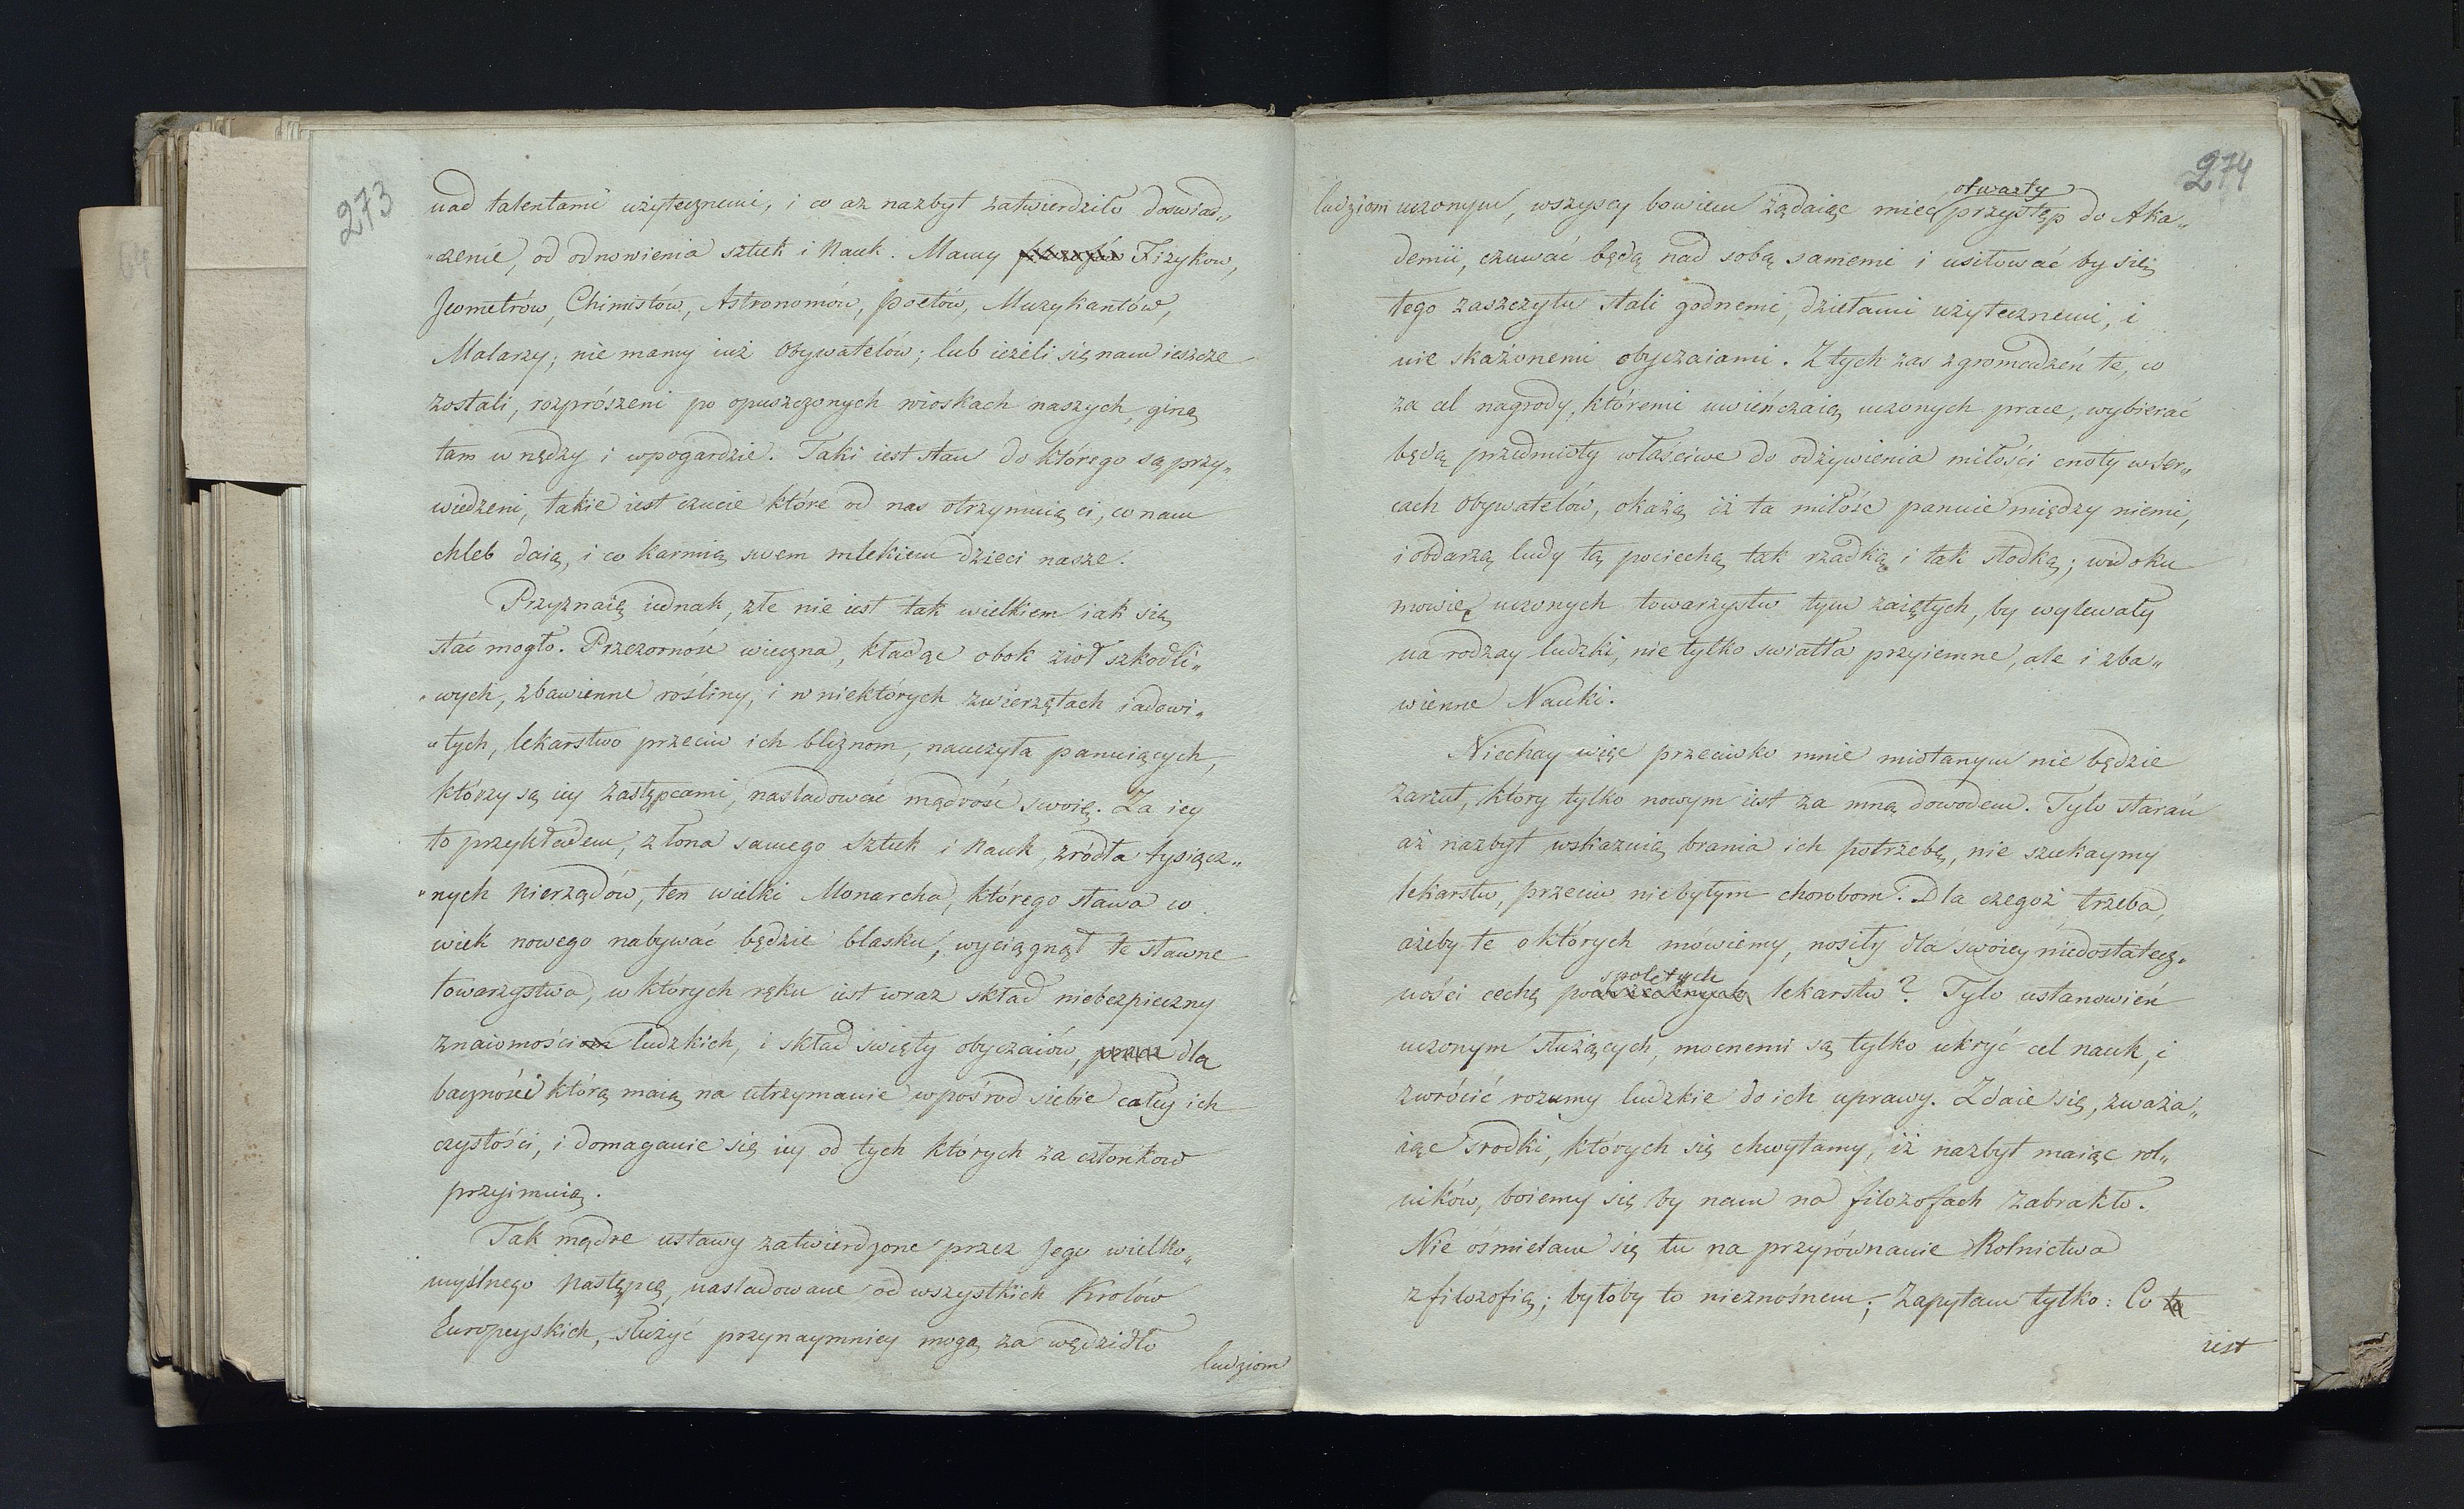 273
nad talentami użytecznemi, i co aż nazbyt zatwierdziło doswiad„
„czenie, od odnowienia sztuk i Nauk. Mamy Fizykow,
Jeometrów, Chimistów, Astronomów, poetów, Muzykantów,
Malarzy; nie mamy iuż Obywatelów; lub ieżeli się nam ieszcze
zostali, rozprószeni po opuszczonych wioskach naszych, giną
tam w nędzy i wpogardzie. Taki iest stan do którego są przy„
wiedzeni, takie iest czucie które od nas otrzymuią ci, co nam
chleb daią, i co karmią swem mlekiem dzieci nasze.
Przyznaię iednak, złe nie iest tak wielkiem iak się
stać mogło. Przezorność wieczna, kładąc obok ziół szkodli„
„wych, zbawienne rośliny, i w niektórych zwierzętach iadowi„
„tych, lekarstwo przeciw ich bliznom, nauczyła panuiących,
którzy są iey zastępcami, nasladować mądrość swoię. Za iey
to przykładem, z łona samego Sztuk i Nauk, zródła tysiącz„
„nych Nierządów, ten wielki Monarcha, którego sława co
wiek nowego nabywać będzie blasku, wyciągnął te sławne
towarzystwa, w których ręku iest wraz skład niebezpieczny
znaiomości ludzkich, i skład swięty obyczaiów, dla
baczności którą maią na utrzymanie wpośrod siebie całey ich
czystości, i domaganie się iey od tych których za członkow
przyimuią.
Tak mądre ustawy zatwierdzone przez Jego wielko„
myślnego Następcę, nasladowane od wszystkich Krolów
Europeyskich, służyć przynaymniey mogą za wędzidło
ludziom
274
otwarty
ludziom uczonym, wszyscy bowiem żądaiąc mieć przystęp do Aka„
demii, czuwać będą nad sobą samemi i usiłować by się
tego zaszczytu stali godnemi, dziełami użytecznemi, i
nie skażonemi obyczaiami. Z tych zas zgromadzeń te, co
za cel nagrody, któremi uwieńczaią uczonych prace, wybierać
będą przedmioty właściwe do odżywienia miłości cnoty w ser„
cach Obywatelów, okażą iż ta miłość panuie między niemi,
i obdarzą ludy tą pociechą tak rzadką i tak słodką; widoku
mowię uczonych towarzystw tym zaiętych, by wylewały
na rodzay ludzki, nie tylko swiatła przyiemne, ale i zba„
wienne Nauki.
Niechay więc przeciwko mnie miotanym nie będzie
zarzut, ktory tylko nowym iest za mną dowodem. Tylo starań
aż nazbyt wskazuią brania ich potrzebę, nie szukaymy
lekarstw, przeciw niebyłym chorobom. Dla czegoż trzeba,
ażeby te o których mówiemy, nosiły dla swoiey niedostatecz„
spolitych
ności cechę po lekarstw? Tylo ustanowień
uczonym służących, mocnemi są tylko ukryć cel nauk, i
zwrócić rozumy ludzkie do ich uprawy. Zdaie się, zważa„
iąc srodki, których się chwytamy, iż nazbyt maiąc rol„
ników, boiemy się by nam na filozofach zabrakło.
Nie ośmielam się tu na przyrównanie Rolnictwa
z filozofią; byłoby to nieznośnem; Zapytam tylko: Co to
iest